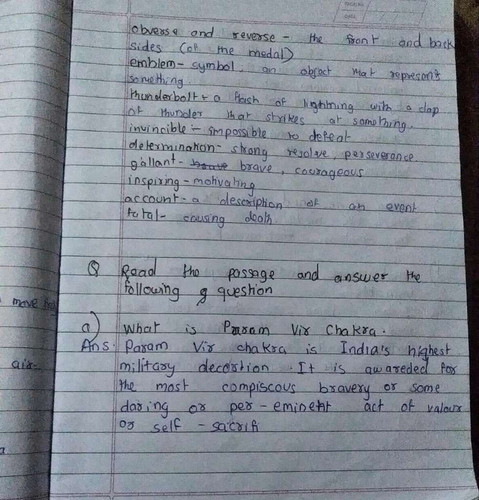 obverse and reverse - the front and back
sides (of the medal)
emblem - symbol, an object that represents
something
thunderbolt - a flash of lightning with a clap
of thunder that strikes at something.
invincible - impossible to defeat
determination - strong resolve, perseverance
gallant - brave, courageous
inspiring - motivating
account - a description of an event
fatal - causing death
Q Read the passage and answer the
following q question
a) What is Param Vir Chakra.
Ans: Param Vir chakra is India's highest
military decortion. It is awareded for
the most compiscous bravery or some
daring or per-eminent act of valour
or self - sacrifi
move
air-